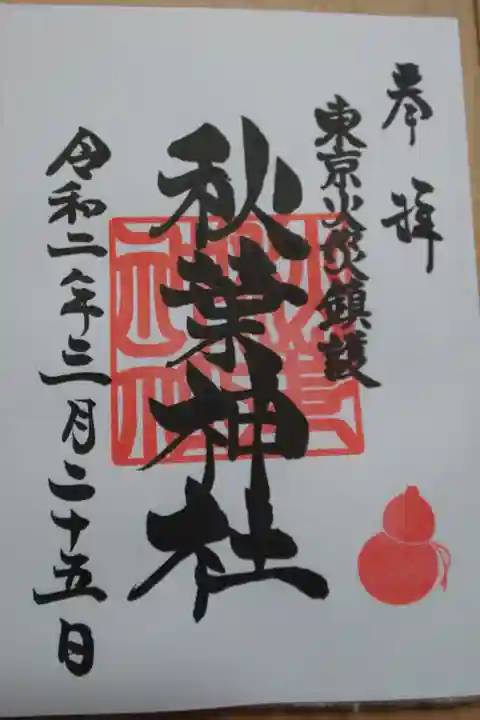 奉拝
東京火災鎮護
秋葉神社
令和二年三月二十五日